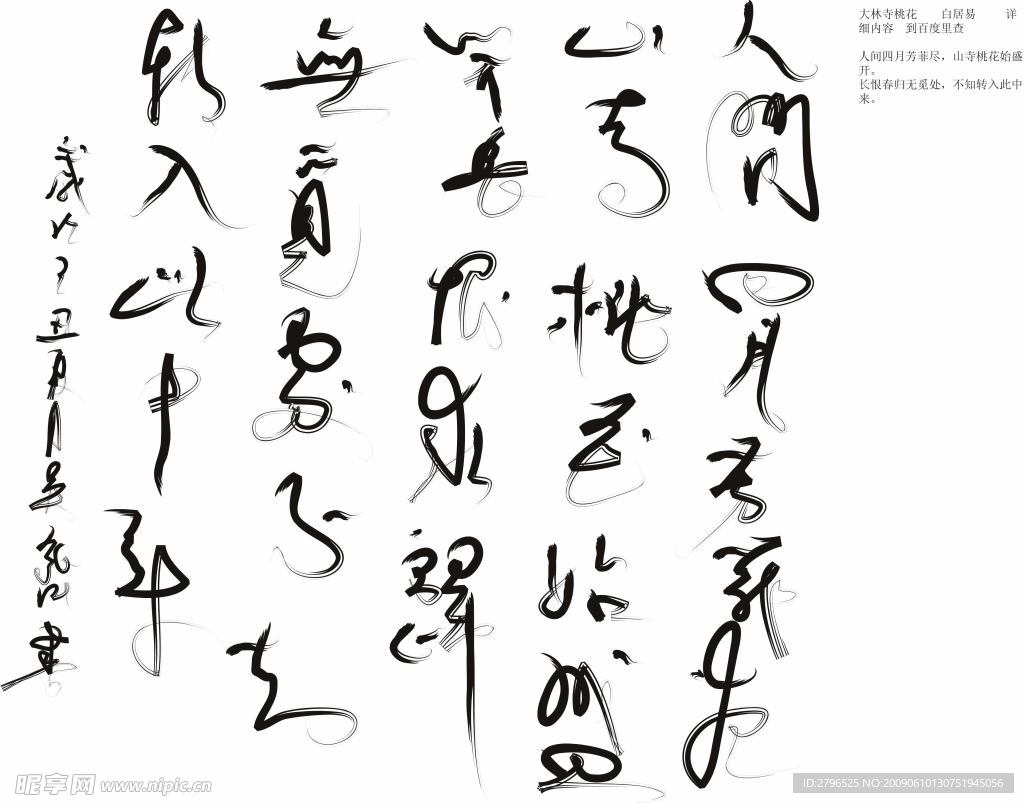 人間四月芳菲盡
山寺桃花始盛
開長恨春歸
無覓處不知
轉入此中來
歲次丁丑夏月 書
大林寺桃花 白居易 详
细内容 到百度里查
人间四月芳菲尽，山寺桃花始盛
开。
长恨春归无觅处，不知转入此中
来。
昵享网 www.nipic.cn
ID:2796525 NO:20090610130751945056